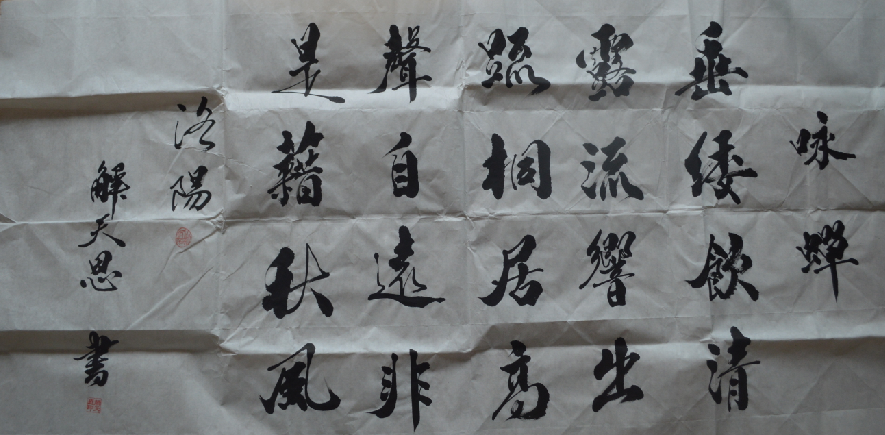 咏蝉
垂緌飲清
露流響出
踈桐居高
聲自遠非
是藉秋風
洛陽
解天思書